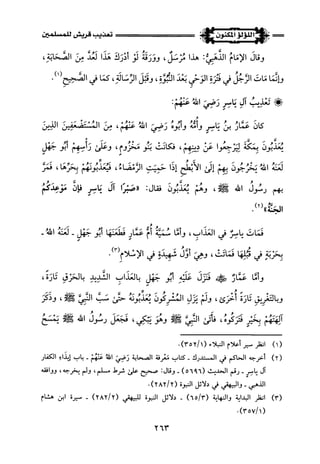 اللؤلؤ المكنون
تعذيب قريش للمسلمين
وقالَ الإمامُ الذَّهَبِيُّ: هذا مُرْسَلٌ، ووَرَقَةُ لَوْ أدْرَكَ هَذَا لَعُدَّ مِنَ الصَّحَابَةِ،
وإنَّمَا مَاتَ الرَّجُلُ في فَتْرَةِ الوَحْيِ بَعْدَ النُّبُوَّةِ، وقَبْلَ الرِّسَالَةِ، كمَا في الصَّحِيحِ(١).
تَعْذِيبُ آلِ يَاسِرٍ رَضِيَ اللهُ عَنْهُمْ:
كانَ عَمَّارُ بنُ يَاسِرٍ وأُمُّهُ وأبُوهُ رَضِيَ اللهُ عَنْهُمْ، مِنَ المُسْتَضْعَفِينَ الذِينَ
يُعَذَّبُونَ بِمَكَّةَ لِيَرْجِعُوا عَنْ دِينِهِمْ، فكَانَتْ بَنُو مَخْزُومٍ، وعَلَى رَأْسِهِمْ أبُو جَهْلٍ
لَعَنَهُ اللهُ يَخْرُجُونَ بِهِمْ إلى الأَبْطُحِ إذَا حَمِيَتِ الرَّمْضَاءُ، فَيُعَذِّبُونَهُمْ بِحَرِّهَا، فَمَرَّ
بهم رسُولُ اللهِ ﷺ، وهُمْ يُعَذَّبُونَ فقال: «صَبْرًا آلَ يَاسِرٍ فإنَّ مَوْعِدَكُمُ
الجَنَّةُ»(٢).
فَمَاتَ يَاسِرٌ في العَذَابِ، وأمَّا سُمَيَّةُ أُمُّ عَمَّارٍ فَطَعَنَهَا أبُو جَهْلٍ - لَعَنَهُ اللهُ -
بِحَرْبَةٍ في قُبُلِهَا فَمَاتَتْ، وهِيَ أوَّلُ شَهِيدَةٍ في الإسْلامِ(٣).
وأمَّا عَمَّارٌ ﷺ فَنَزَلَ عَلَيْهِ أبُو جَهْلٍ بالعَذَابِ الشَّدِيدِ بالحَرْقِ تَارَةً،
وبالتَّغْرِيقِ تَارَةً أُخْرَى، ولَمْ يَزَلِ المُشْرِكُونَ يُعَذِّبُونَهُ حتَّى سَبَّ النَّبِيَّ ﷺ، وذَكَرَ
آلِهَتَهُمْ بِخَيْرٍ فَتَرَكُوهُ، فأتَى النَّبِيَّ ﷺ وهُوَ يَبْكِي، فَجَعَلَ رسُولُ اللهِ ﷺ يَمْسَحُ
(١) انظر سير أعلام النبلاء (٣٥٢/١).
(٢) أخرجه الحاكم في المستدرك - كتاب معرفة الصحابة رَضِيَ اللهُ عَنْهُمْ - باب إيذاء الكفار
آل ياسر - رقم الحديث (٥٦٩٦) - وقال: صحيح على شرط مسلم، ولم يخرجه، ووافقه
الذهبي - والبيهقي في دلائل النبوة (٢٨٢/٢).
(٣) انظر البداية والنهاية (٦٥/٣) - دلائل النبوة للبيهقي (٢٨٢/٢) - سيرة ابن هشام
(٣٥٧/١).
٢٦٣